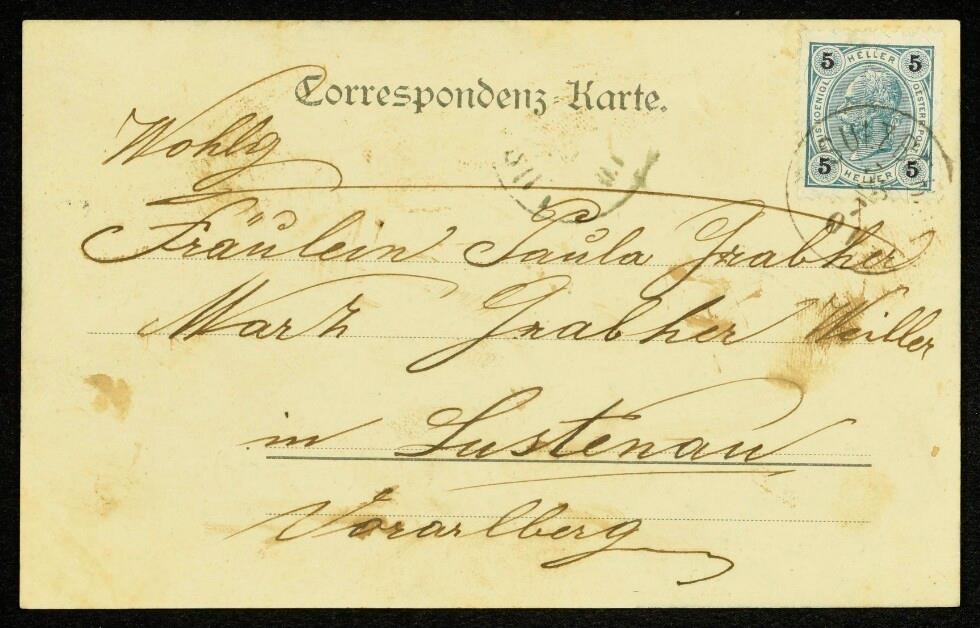 Correspondenz-Karte.
5 HELLER 5
KAIS. KOENIGL. OESTERR. POST
5 HELLER 5
Wohlg
Fräulein Paula Grabher
Marx Grabher Willer
in Lustenau
Vorarlberg